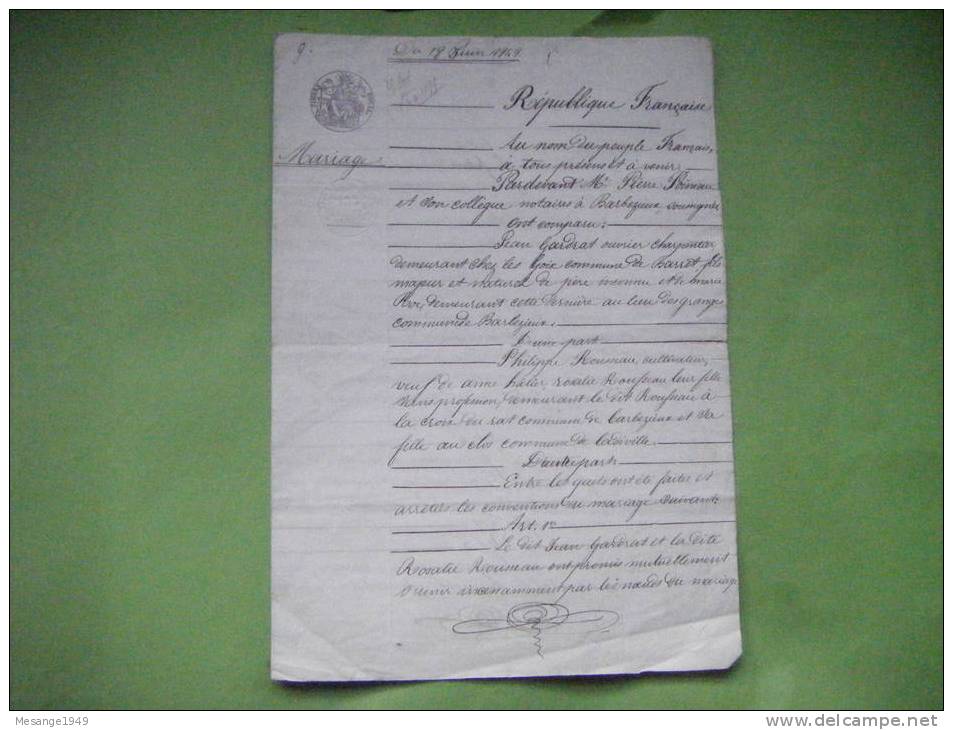 Du 18 Juin 1849
République Française
Mariage
Au nom du peuple Français,
à tous présens et à venir
Pardevant Me Pierre
et son collègue notaires à Barbezieux, soussignés
Ont comparu:
Jean Gardrat ouvrier charpentier
demeurant chez les commune de Barret fils
majeur et naturel de père inconnu et de marie
demeurant cette dernière au lieu des granges
commune de Barbezieux.
D'une part
Philippe Rousseau, cultivateur,
veuf de anne rosalie Rousseau leur fille
sans profession, demeurant le dit Rousseau à
la croix du rat commune de barbezieux et sa
fille au clos commune de
D'autre part
Entre lesquels ont été faites et
arrêtées les conventions du mariage suivantes
Art. 1er
Le dit Jean Gardrat et la dite
Rosalie Rousseau ont promis mutuellement
s'unir incessamment par les nœuds du mariage
Mesange1949
www.delcampe.net